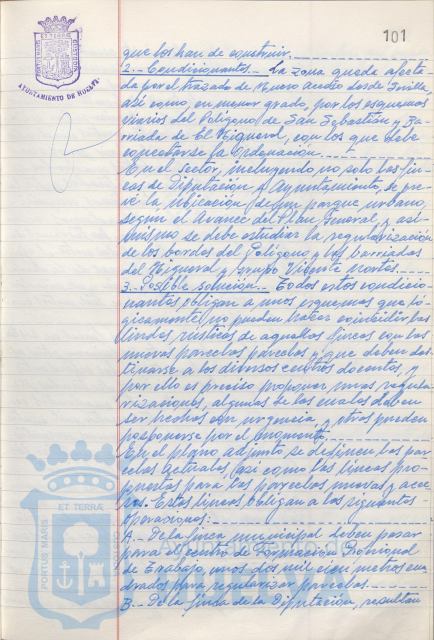 101
AYUNTAMIENTO DE HUELVA
que los han de construir.
2.- Condicionantes.- La zona queda afecta-
da por el trazado de Nuevo acceso desde Sevilla,
así como, en menor grado, por los esquemas
viarios del Polígono de San Sebastián y Ba-
rriada de El Higueral, con los que debe
conectarse la Ordenación.
En el sector, incluyendo no solo las fin-
cas de Diputación y Ayuntamiento, se pre-
vé la ubicación de un parque urbano,
según el Avance del Plan General, y asi-
mismo se debe estudiar la regularización
de los bordes del Polígono y las barriadas
del Higueral y Grupo Vicente
3.- Posible solución.- Todos estos condicio-
nantes obligan a unos esquemas que ló-
gicamente no pueden hacer coincidir las
lindes rústicas de aquellas fincas con las
nuevas parcelas parcelas y que deben des-
tinarse a los diversos centros docentes, y
por ello es preciso proponer unas regula-
rizaciones, algunas de las cuales deben
ser hechas con urgencia y otras pueden
posponerse por el momento.
En el plano adjunto se definen las par-
celas actuales así como las líneas pro-
puestas para las parcelas nuevas y acce-
sos. Estas líneas obligan a las siguientes
operaciones:
A.- De la finca municipal deben pasar
para el centro de Formación Profesional
de Trabajo, unos dos mil cien metros cua-
drados para regularizar parcelas.
B.- De la finca de la Diputación, resultan
ET TERRÆ
PORTUS MARIS